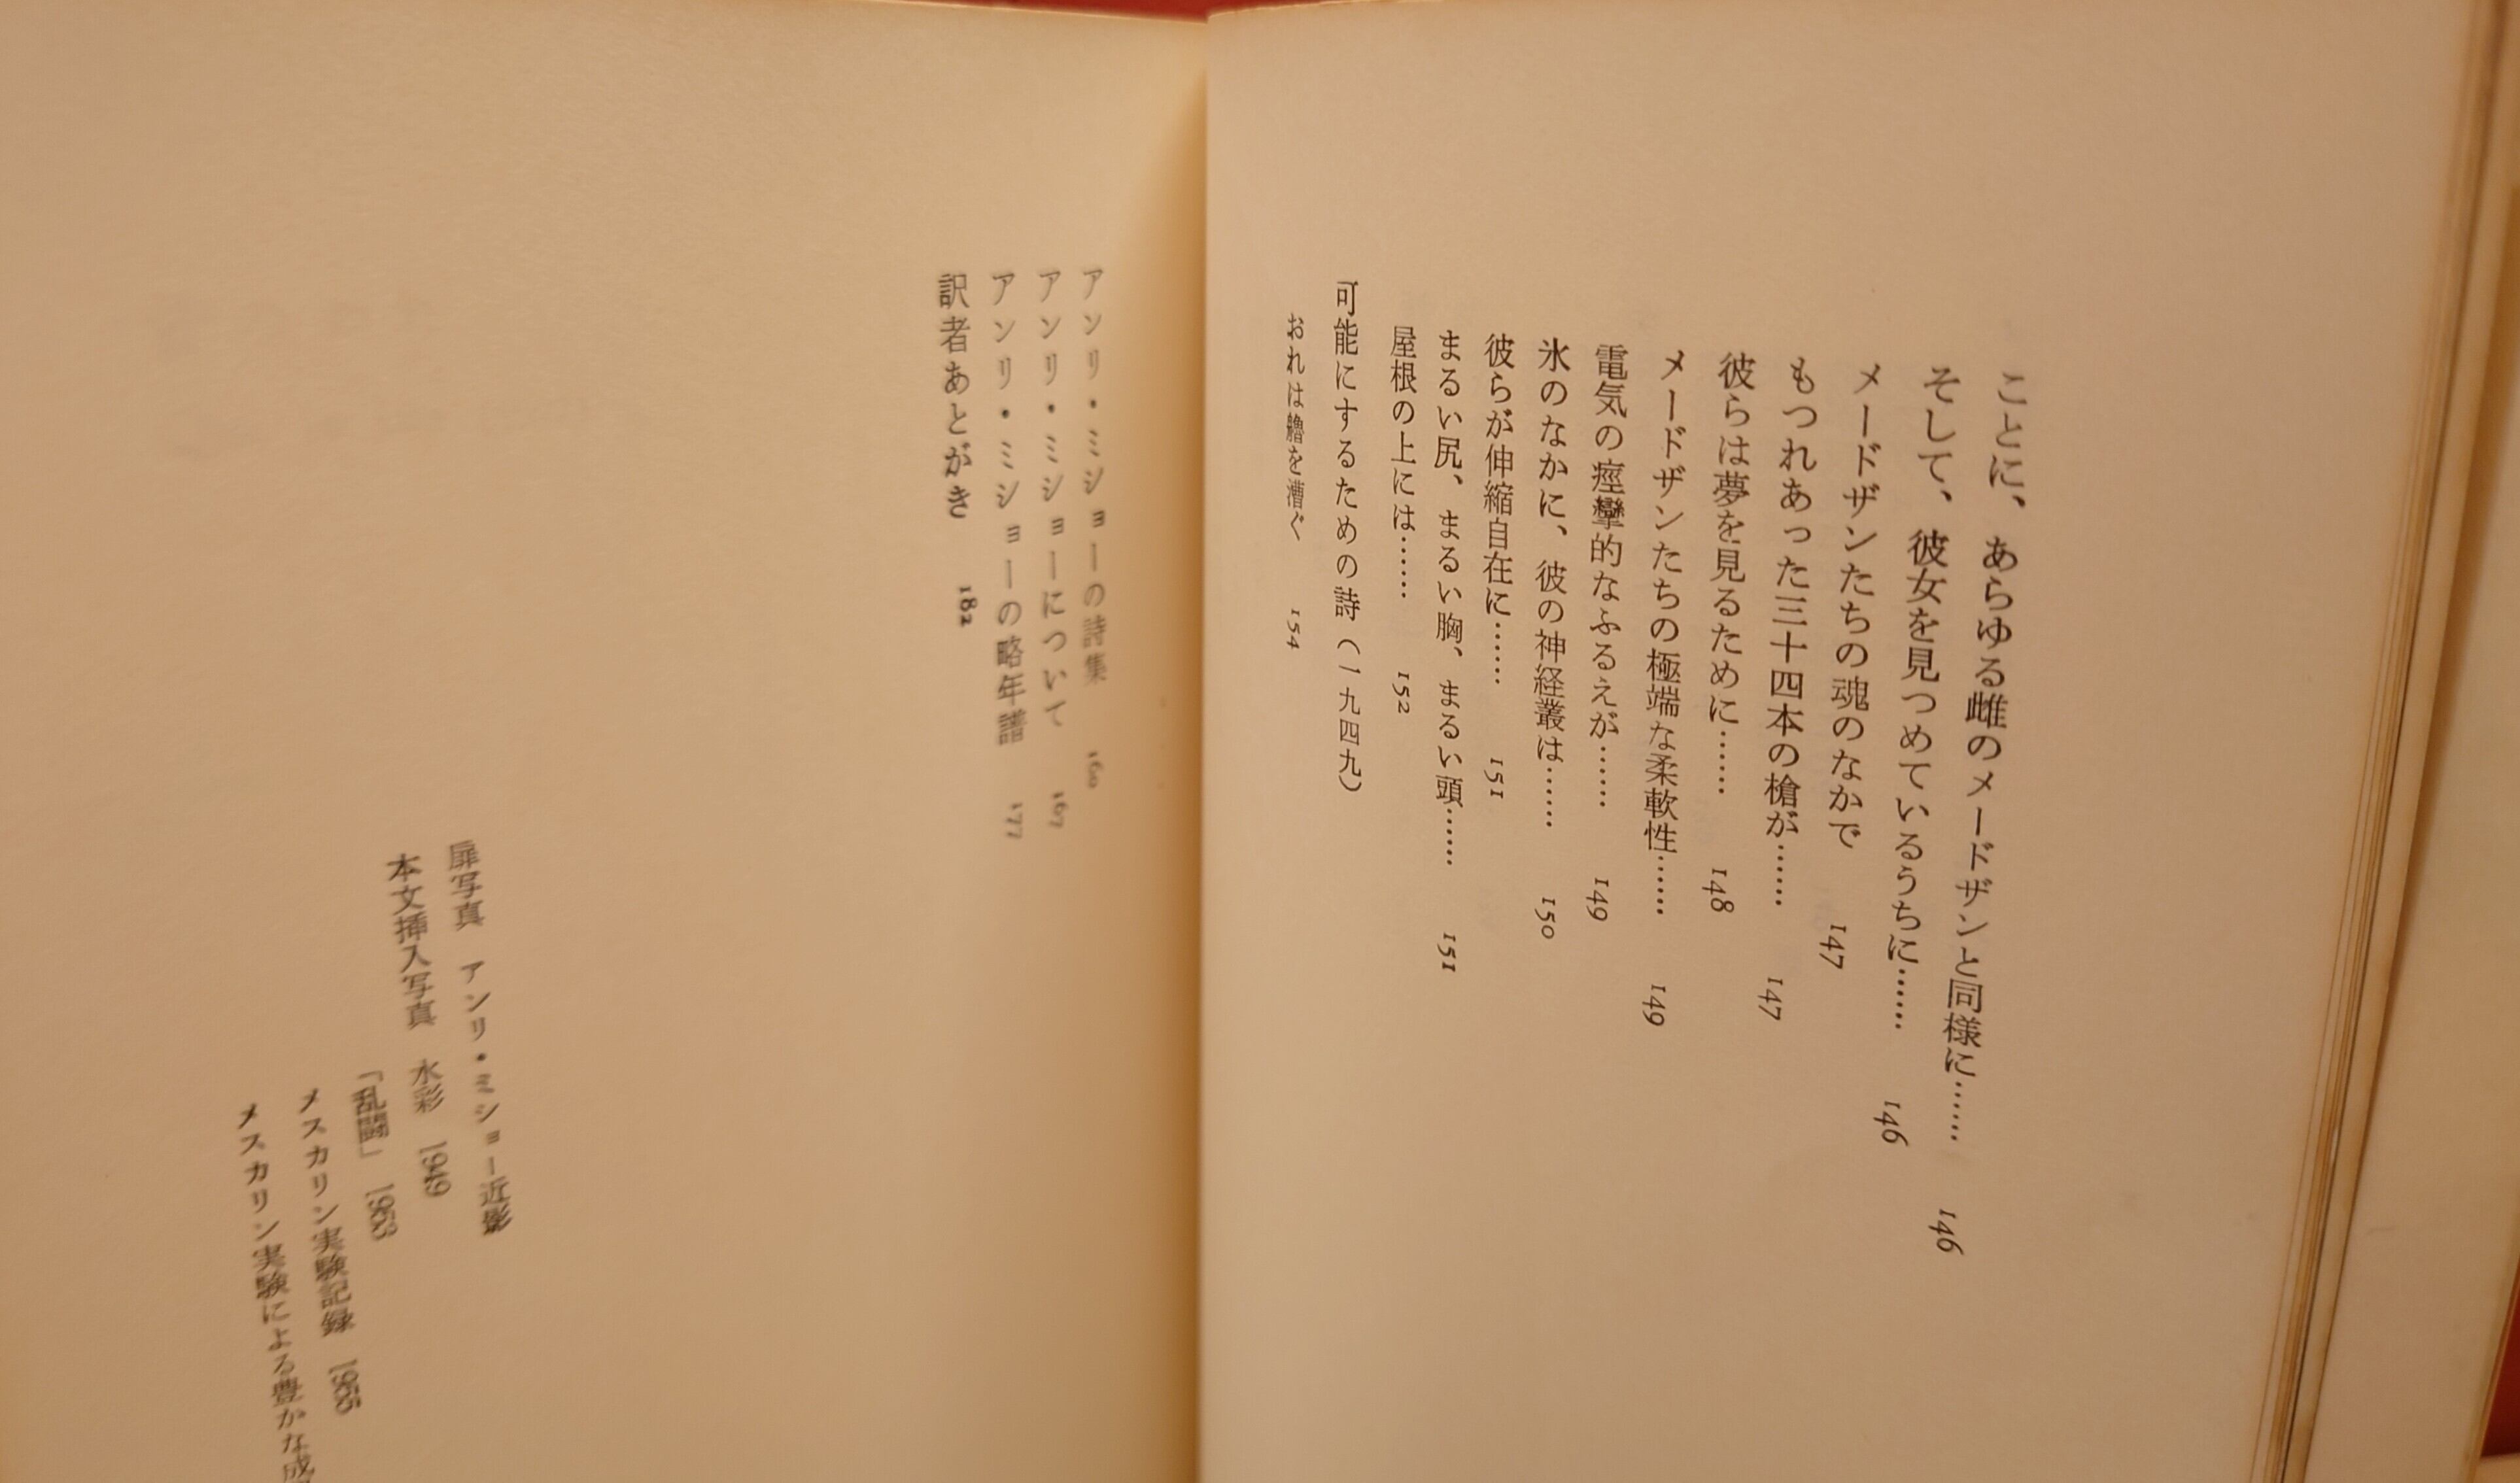 ことに、あらゆる雌のメードザンと同様に…… 146
そして、彼女を見つめているうちに…… 146
メードザンたちの魂のなかで 147
もつれあった三十四本の槍が…… 147
彼らは夢を見るために…… 148
メードザンたちの極端な柔軟性…… 149
電気の痙攣的なふるえが…… 149
氷のなかに、彼の神経叢は…… 150
彼らが伸縮自在に…… 151
まるい尻、まるい胸、まるい頭…… 151
屋根の上には…… 152
可能にするための詩（一九四九）
おれは艪を漕ぐ 154
アンリ・ミショーの詩集 160
アンリ・ミショーについて 167
アンリ・ミショーの略年譜 177
訳者あとがき 182
扉写真 アンリ・ミショー近影
本文挿入写真 水彩 1949
「乱闘」 1953
メスカリン実験記録 1955
メスカリン実験による豊かな成